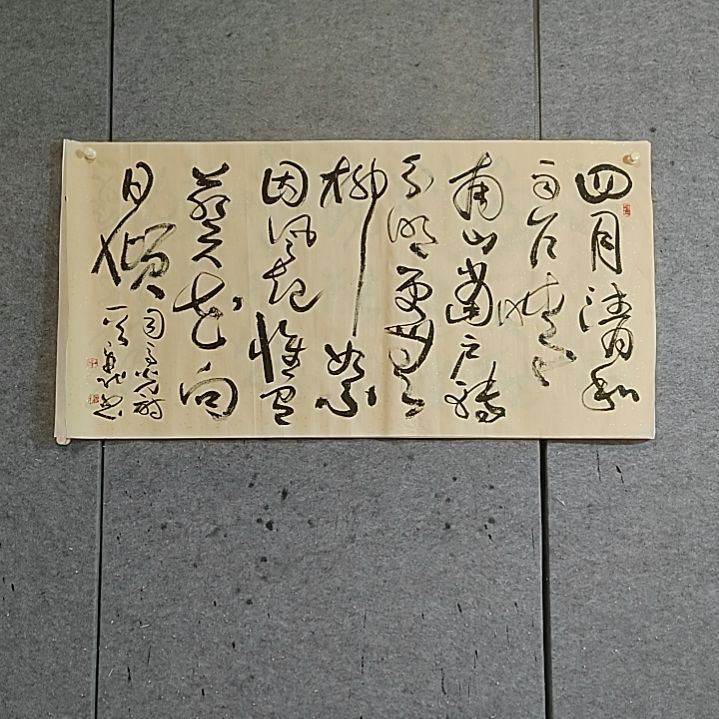 四月清和
雨乍晴
南山當户轉
分明更無
柳絮
因風起惟有
葵花向
日傾
司馬光詩